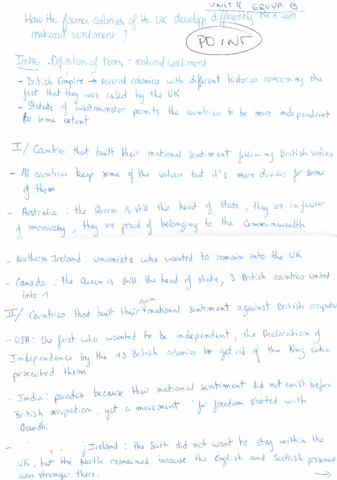 UNIT 4 GROUP B
How the former colonies of the UK develop differently their own
national sentiment ?
POINT
Intro. Definition of terms : national sentiment
- British Empire → several colonies with different histories concerning the
fact that they were ruled by the UK
- Statute of Westminster permits the countries to be more independent
to some extent
I/ Countries that built their national sentiment following British values
- All countries keep some of the values but it's more obvious for some
of them
- Australia : the Queen is still the head of state, they are in favour
of monarchy, they are proud of belonging to the Commonwealth
- Northern Ireland : unionists who wanted to remain into the UK
- Canada : the Queen is still the head of state, 3 British countries united
into 1
II/ Countries that built their own national sentiment against British occupation
- USA : the first who wanted to be independent, the Declaration of
Independence by the 13 British colonies to get rid of the King who
persecuted them
- India : paradox because their national sentiment did not exist before
British occupation, yet a movement for freedom started with
Gandhi
- Ireland : the South did not want to stay within the
UK, but the North remained because the English and Scottish presence
was stronger there.
→